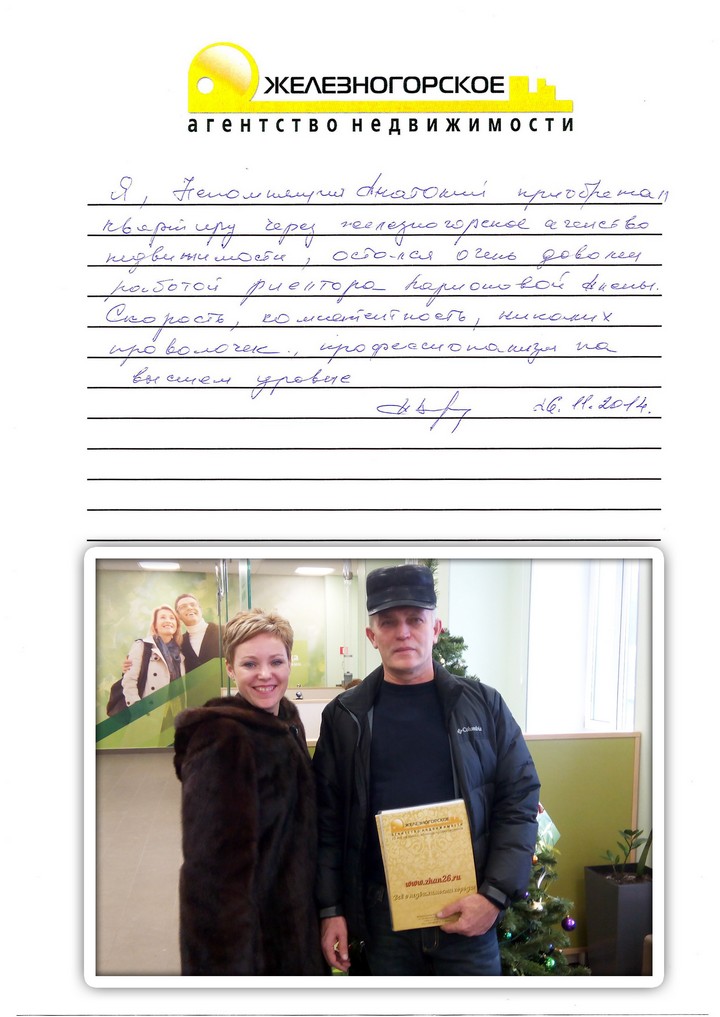 ЖЕЛЕЗНОГОРСКОЕ
агентство недвижимости
Я, Непомнящий Анатолий приобретал
квартиру через железногорское агенство
недвижимости, остался очень доволен
работой риелтора Алены.
Скорость, компетентность, никаких
проволочек., профессионализм на
высшем уровне
26.11.2014.
Columbia
ЖЕЛЕЗНОГОРСКОЕ
агентство недвижимости
www.zhan26.ru